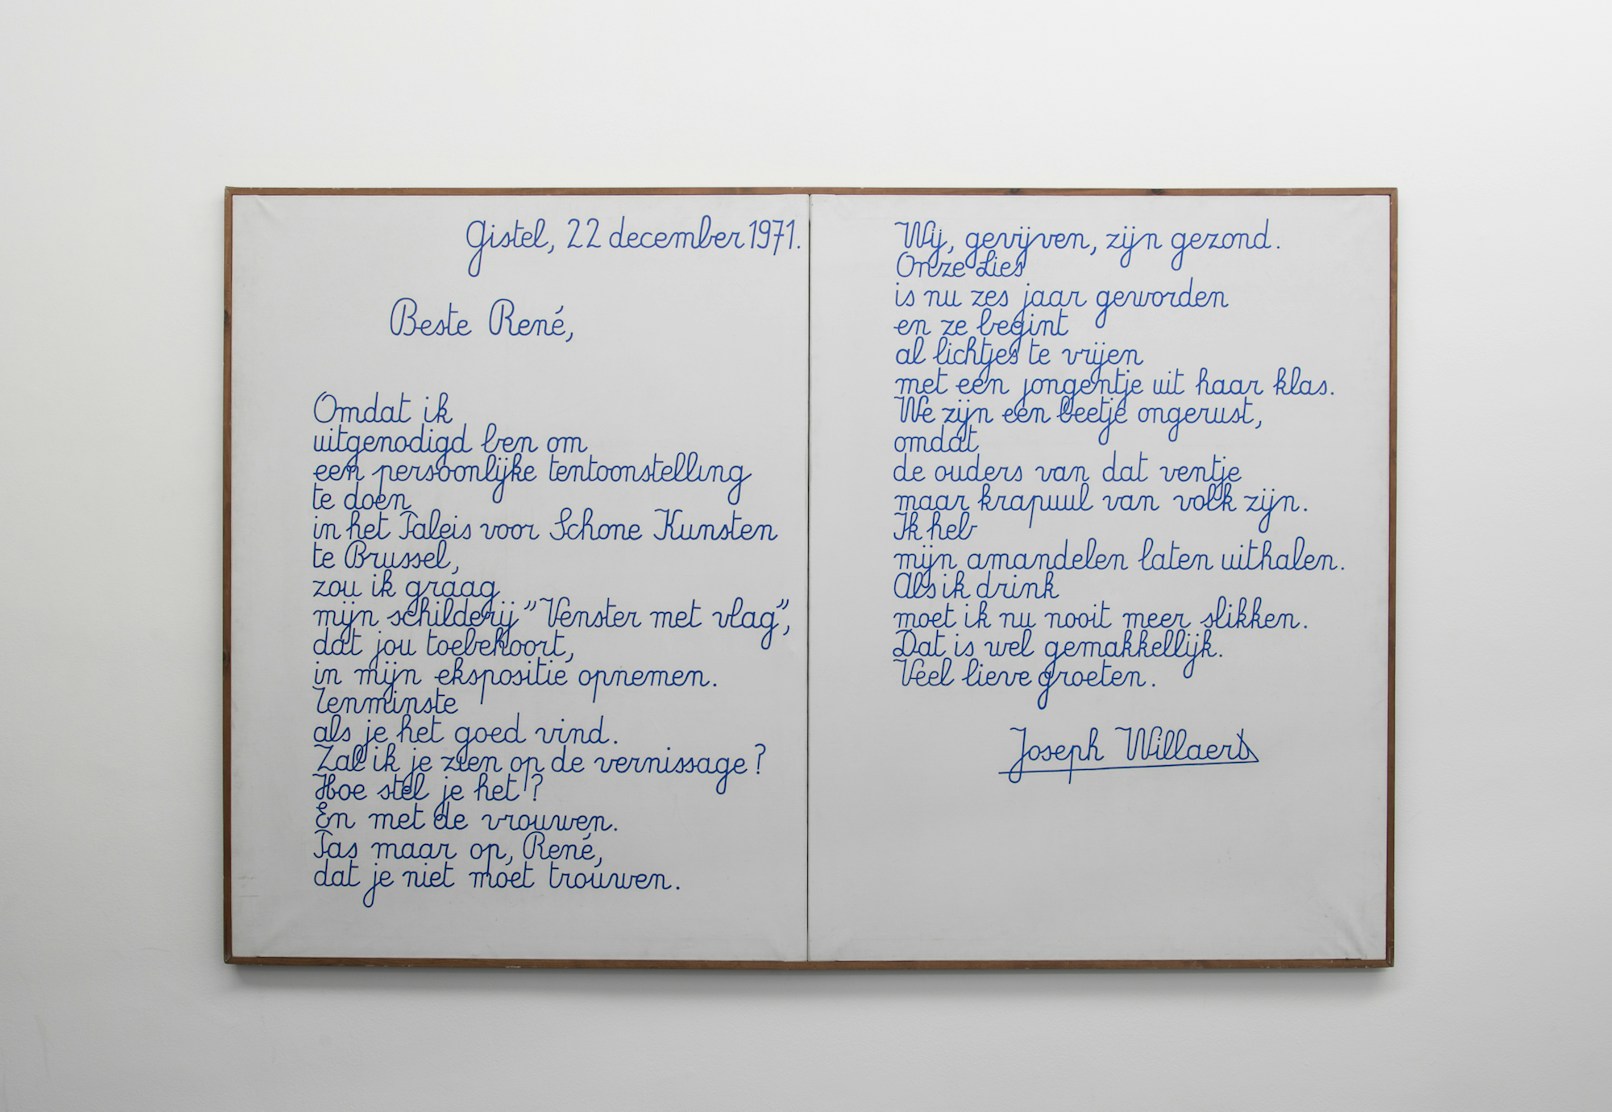 Gistel, 22 december 1971.
Beste René,
Omdat ik
uitgenodigd ben om
een persoonlijke tentoonstelling
te doen
in het Paleis voor Schone Kunsten
te Brussel,
zou ik graag
mijn schilderij "Venster met vlag",
dat jou toebehoort,
in mijn ekspositie opnemen.
Tenminste
als je het goed vind.
Zal ik je zien op de vernissage?
Hoe stel je het?
En met de vrouwen.
Pas maar op, René,
dat je niet moet trouwen.
Wij, gevijven, zijn gezond.
Onze Lies
is nu zes jaar geworden
en ze begint
al lichtjes te vrijen
met een jongentje uit haar klas.
We zijn een beetje ongerust,
omdat
de ouders van dat ventje
maar krapuul van volk zijn.
Ik heb
mijn amandelen laten uithalen.
Als ik drink
moet ik nu nooit meer slikken.
Dat is wel gemakkellijk.
Veel lieve groeten.
Joseph Willaert